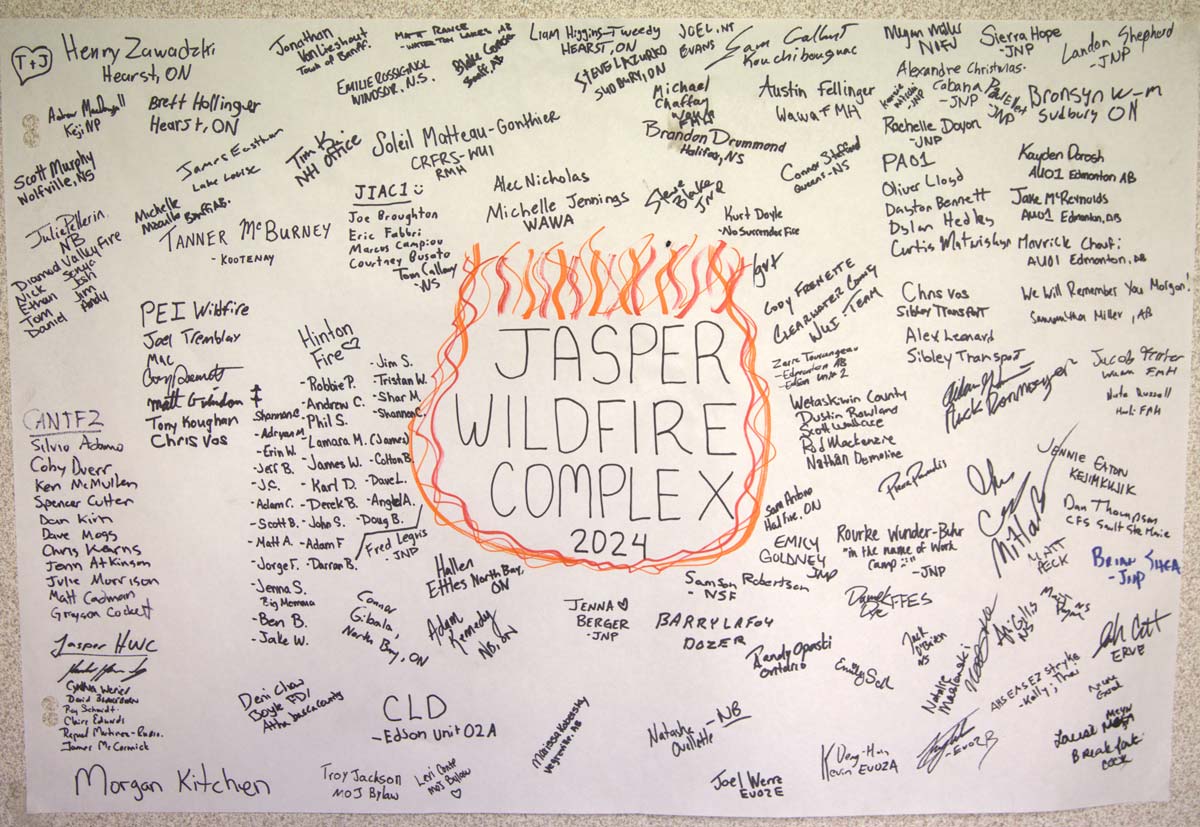 T + J
Henry Zawadzki
Hearst, ON
Jonathan
VanLieshout
Town of Banff.
MATT RANCE
- WATERTON LAKES, AB
EMILIE ROSSIGNOL
WINDSOR, N.S.
Blake
Banff, AB
LIAM Higgins-Tweedy
HEARST, ON
STEVE LAZURKO
SUDBURY, ON
JOEL, NT
EVANS
Sam Gallant
Kouchibouguac
Megan Miller
Sierra Hope
-JNP
Landon Shepherd
-JNP
Alexandre Christmas.
Cabana
-JNP
JNP
Bronsyn W-M
Sudbury ON
Michael
Chaffey
Wawa
FMH
Austin Fellinger
Wawa FMH
Rachelle Dayon
-JNP
Keji NP
Brett Hollinger
Hearst, ON
James Eastham
Lake Louise
NH OFFICE
Soleil Matteau-Gonthier
CRFRS-WUI
RMH
Brandon Drummond
Halifax, NS
Connor Stafford
Queens-NS
Scott Murphy
Wolfville, NS
Michelle
Banff AB.
JIAC1
Joe Broughton
Eric Fabbri
Marcus Campiou
Courtney Busato
Tom Calloway
NS
Alec Nicholas
Michelle Jennings
WAWA
Steve
Blake
JNP
Kurt Doyle
- No Surrender Fire
PA01
Oliver Lloyd
Dayton Bennett
Dylan Hedley
Curtis Matwishyn
Kayden Dorosh
AU01 Edmonton AB
Jake McReynolds
AU01 Edmonton, AB
Mavrick Choufi
AU01 Edmonton, AB
Julie Pellerin
NB
TANNER McBURNEY
- KOOTENAY
Diamond Valley Fire
Nick
Ethan
Tom
Daniel
Sonya
Josh
Jim
Andy
PEI Wildfire
Joel Tremblay
Mac
Tony Koughan
Chris Vos
Hinton
Fire
- Robbie P.
- Andrew C.
- Phil S.
- Lamara M. (James)
- James W.
- Karl D.
- Derek B.
- John S.
- Adam F
- Darran B.
- Jim S.
- Tristan W.
- Shar M.
- Shannon C.
- Colton B.
- Dave L.
- Angled A.
- Doug B.
Shannon C.
- Adryan M.
- Erin W.
- Jeff B.
- J.C.
- Adam C.
- Scott B.
- Matt A.
- Jorge F.
- Jenna S.
- Ben B.
- Jake W.
Fred Legris
JNP
JASPER
WILDFIRE
COMPLEX
2024
CODY FRENETTE
CLEARWATER County
WUI-TEAM
- Edmonton AB
Edson Unit 2
Wetaskiwin County
Dustin Rowland
Scott Wallace
Rod Mackenzie
Nathan Demoline
Chris Vos
Sibley Transport
Alex Leonard
Sibley Transport
We Will Remember You Morgan!
Samantha Miller, AB
Jacob
Wawa FMH
Nate Russell
FMH
CANTF2
Silvio Adamo
Coby Duerr
Ken McMullen
Spencer Cutter
Dan Kirk
Dave Mogg
Chris Kearns
Jenn Atkinson
Julie Morrison
Matt Cadman
Grayson Cockett
Jasper HWC
Ray Schmidt
Claire Edwards
Raquel Martinez-Radio.
James McCormick
Hallen
Ettles North Bay,
ON
Connor
Gibala,
North Bay, ON
Adam
Kennedy
NB, ON
JENNA
BERGER
-JNP
Samson Robertson
- NSF
BARRY LAFOY
DOZER
EMILY
GOLDNEY
JNP
Rourke Wunder-Buhr
"in the name of Work
Camp"
-JNP
JENNIE EATON
KEJIMKUJIK
Dan Thompson
CFS Sault Ste Marie
BRIAN SHEA
-JNP
MATT
AECK
FFES
Randy Opaski
Ontario
Emily Sell
Jack
O'Brien
NS
Natalie
NS
ERVE
Boyle FD/
Athabasca County
CLD
-Edson Unit 02A
Vegreville, AB
Natasha
Ouillette - NB
Joel Werre
EVO2E
Kevin EVO2A
-EVO2B
Morgan Kitchen
Troy Jackson
MOJ Bylaw
Lori
MOJ Bylaw